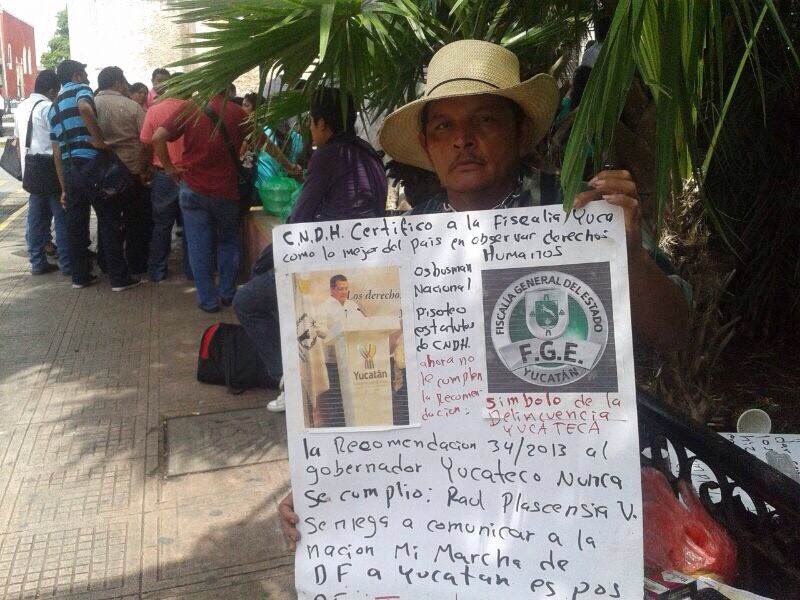 C.N.D.H. Certifico a la Fiscalia/Yuca
como lo mejor del Pais en observar derechos
Humanos
osbusman
Nacional
Pisoteo
estatutos
de CNDH.
ahora no
le cumplen
la Recomen-
dacion:
Los derechos
Yucatán
FISCALÍA GENERAL DEL ESTADO
F.G.E.
YUCATÁN
Simbolo de la
Delincuencia
YUCATECA
la Recomendacion 34/2013 al
gobernador Yucateco Nunca
Se cumplio: Raul Plascensia V.
Se niega a comunicar a la
nacion Mi Marcha de
DF a Yucatan es pos